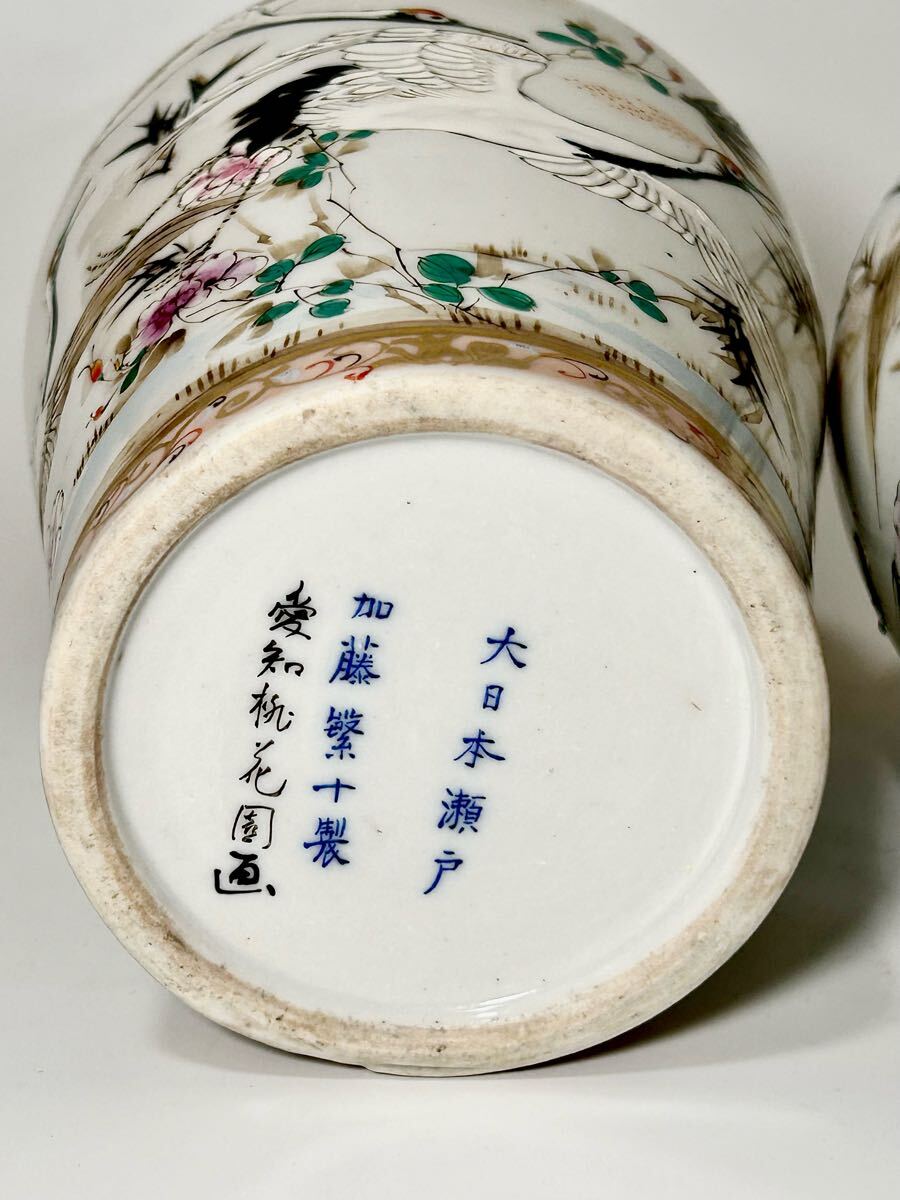 大日本瀬戸
加藤繁十製
愛知桃花園画